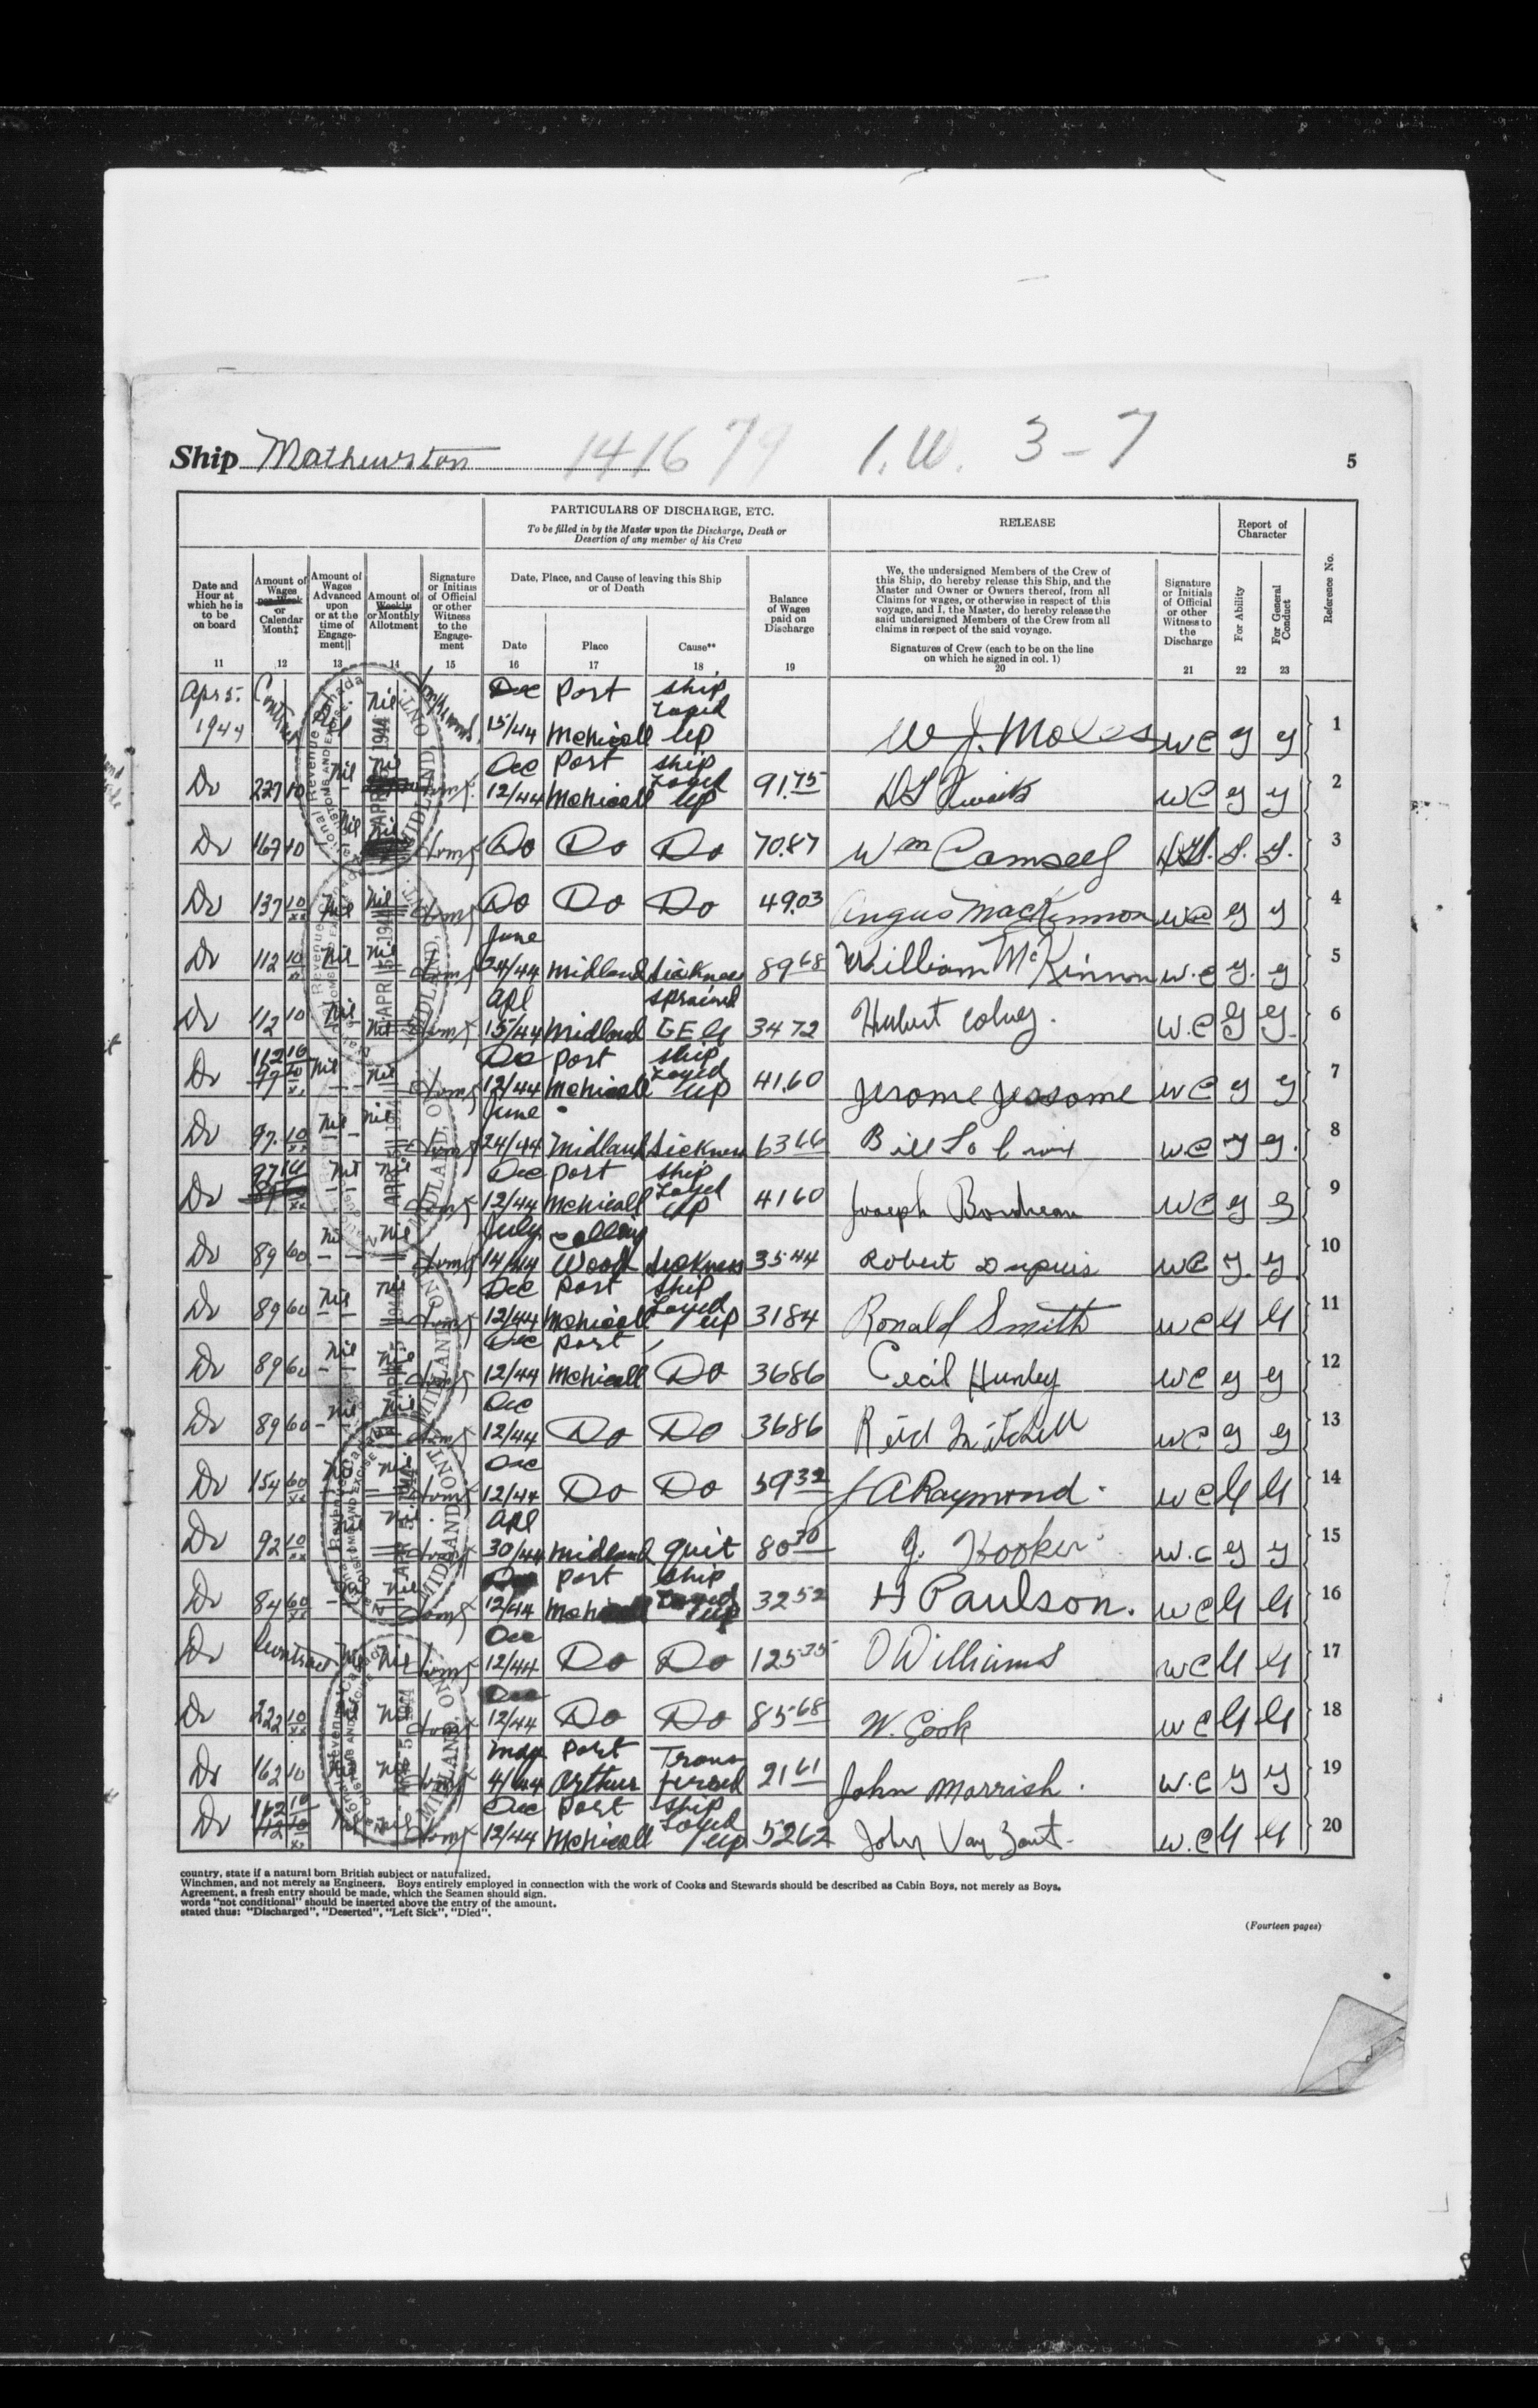 Ship Mathewston 141679 I.W. 3-7 5
PARTICULARS OF DISCHARGE, ETC.
To be filled in by the Master upon the Discharge, Death or
Desertion of any member of his Crew
RELEASE
Report of
Character
Date and
Hour at
which he is
to be
on board
11
Amount of
Wages
per Week
or
Calendar
Month‡
12
Amount of
Wages
Advanced
upon
or at the
time of
Engage-
ment||
13
Amount of
Weekly
or Monthly
Allotment
14
Signature
or Initials
of Official
or other
Witness
to the
Engage-
ment
15
Date, Place, and Cause of leaving this Ship
or of Death
Date
16
Place
17
Cause**
18
Balance
of Wages
paid on
Discharge
19
We, the undersigned Members of the Crew of
this Ship, do hereby release this Ship, and the
Master and Owner or Owners thereof, from all
Claims for wages, or otherwise in respect of this
voyage, and I, the Master, do hereby release the
said undersigned Members of the Crew from all
claims in respect of the said voyage.
Signatures of Crew (each to be on the line
on which he signed in col. 1)
20
Signature
or Initials
of Official
or other
Witness to
the
Discharge
21
For Ability
22
For General
Conduct
23
Reference No.
Apr 5. 1944 Contract Nil Nil Dec 15/44 Port McNicoll Ship Layed up W J. Moles WC G G 1
Do 227 10 Nil Nil Dec 12/44 Port McNicoll Ship Layed up 91.75 WC G G 2
Do 167 10 Nil Nil Do Do Do 70.87 Wm Camsell 3
Do 137 10 Nil Nil Do Do Do 49.03 Angus MacKinnon WC G G 4
Do 112 10 Nil Nil June 24/44 Midland Sickness 89 68 William McKinnon W.C G. G 5
Do 112 10 Nil Nil Apl 15/44 Midland Sprained LEG 34 72 Hubert W.C G G 6
Do 112 10 Nil Nil Dec 12/44 Port McNicoll Ship Layed up 41.60 Jerome Jessome WC G G 7
Do 97. 10 Nil Nil June 24/44 Midland Sickness 63 66 Bill WC G G. 8
Do 97 10 Nil Nil Dec 12/44 Port McNicoll Ship Layed up 41 60 Joseph Boudreau WC G G 9
Do 89 60 Nil Nil July 14/44 Colling Wood Sickness 35 44 Robert Dupuis WC G. G. 10
Do 89 60 Nil Nil Dec 12/44 Port McNicoll Ship Layed up 31 84 Ronald Smith WC G G 11
Do 89 60 Nil Nil Dec 12/44 Port McNicoll Do 36 86 Cecil Hurley WC G G 12
Do 89 60 Nil Nil Dec 12/44 Do Do 36 86 Reid Mitchell WC G G 13
Do 154 60 Nil Nil Dec 12/44 Do Do 59 32 J A Raymond. WC G G 14
Do 92 10 Nil Nil Apl 30/44 Midland Quit 80 30 G. Hooker W.C G G 15
Do 84 60 Nil Dec 12/44 Port Ship Layed up 32 52 H Paulson. WC G G 16
Do Contract Nil Nil Dec 12/44 Do Do 125.75 O Williams WC G G 17
Do 222 10 Nil Nil Dec 12/44 Do Do 85 68 W. Cook WC G G 18
Do 162 10 Nil Nil May 4/44 Port Arthur Transferred 21 61 John Morrish. W.C G G 19
Do 112 10 Nil Nil Dec 12/44 Port McNicoll Ship Layed up 52 62 John Van Zant W.C G G 20
National Revenue Canada
CUSTOMS AND EXCISE
APR 5 1944
MIDLAND, ONT.
country, state if a natural born British subject or naturalized.
Winchmen, and not merely as Engineers. Boys entirely employed in connection with the work of Cooks and Stewards should be described as Cabin Boys, not merely as Boys.
Agreement, a fresh entry should be made, which the Seamen should sign.
words "not conditional" should be inserted above the entry of the amount.
stated thus: "Discharged", "Deserted", "Left Sick", "Died".
(Fourteen pages)